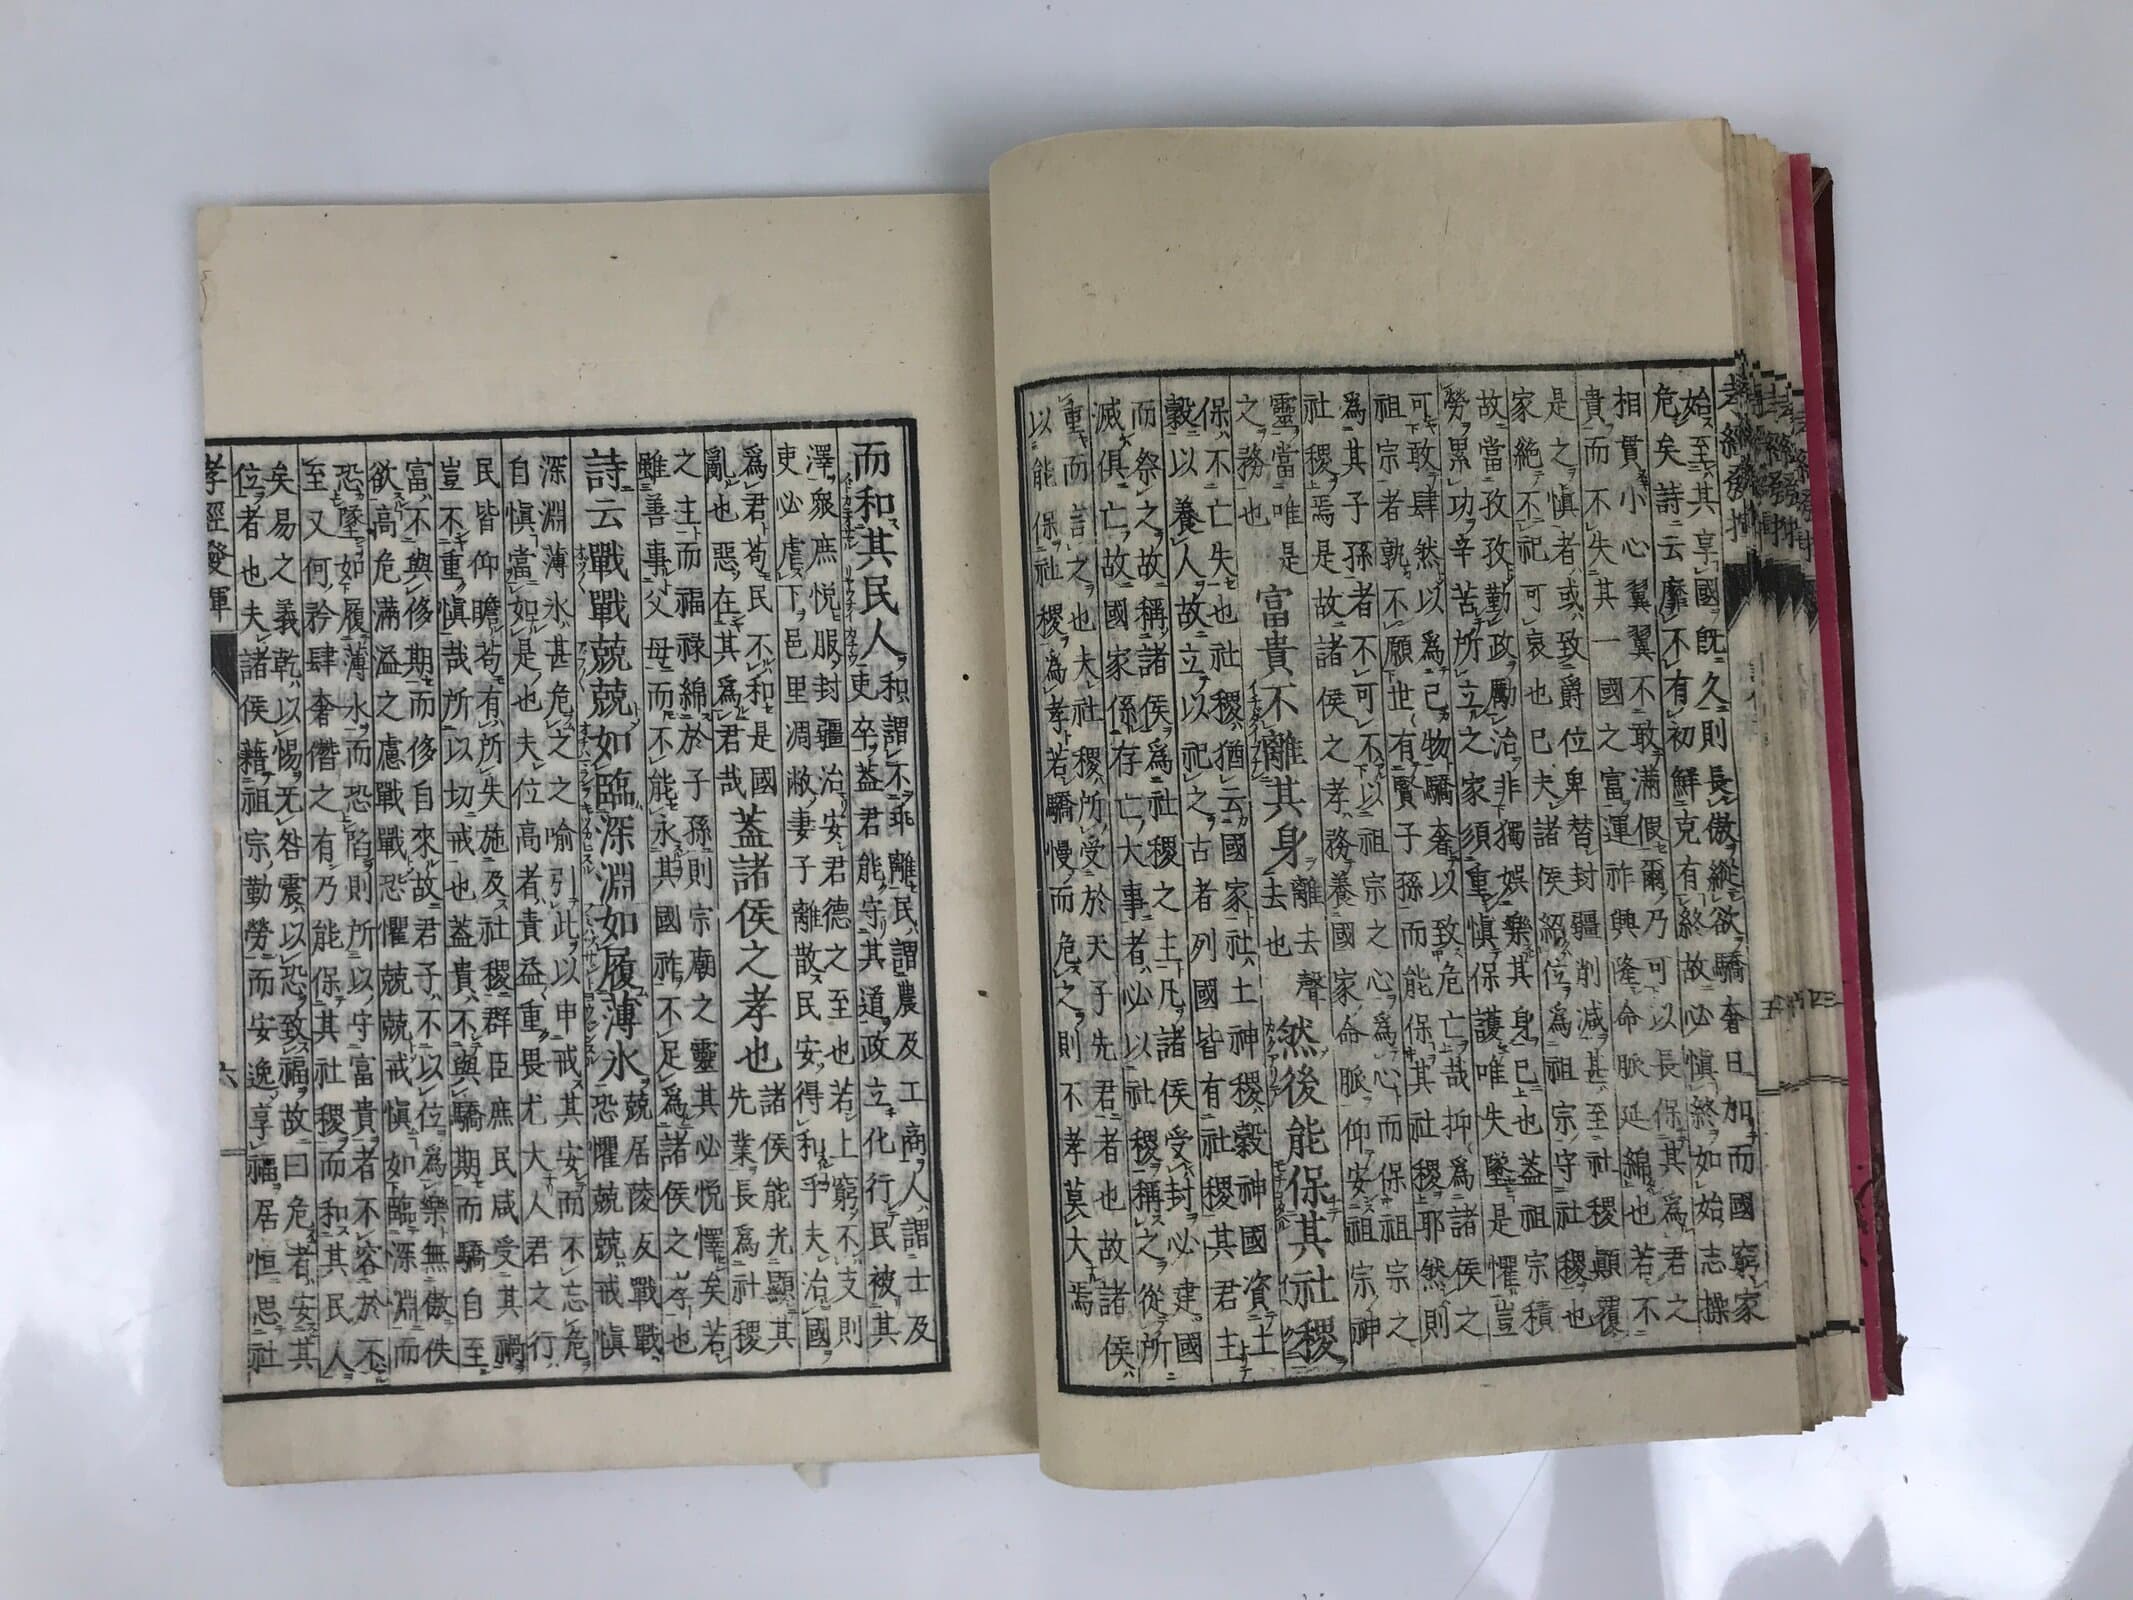 孝經發揮
始至其享國既久則長傲縱欲驕奢日加而國窮家
危矣詩云靡不有初鮮克有終故必愼終如始志操
相貫小心翼翼不敢滿假爾乃可以長保其爲君之
貴而不失其一國之富運祚興隆命脈延綿也若不
是之愼者或致爵位卑替封疆削減甚至社稷顚覆
家絶不祀可哀也已夫諸侯紹位爲祖宗守社稷也
故當孜孜勤政勵治非獨娛樂其身已也蓋祖宗積
勞累功辛苦所立之家須重愼保護唯失墜是懼豈
可敢肆然以爲己物驕奢以致危亡哉抑爲諸侯之
祖宗者孰不願世有賢子孫而能保其社稷耶然則
爲其子孫者不可不以祖宗之心爲心而保祖宗之
社稷焉是故諸侯之孝務養國家命脈仰安祖宗神
靈當唯是
之務也
富貴不離其身
離去聲
去也
然後能保其社稷
保不亡失也社稷猶云國家社土神稷穀神國資土
穀以養人故立以祀之古者列國皆有社稷其君主
而祭之故稱諸侯爲社稷之主凡諸侯受封必建國
滅俱亡故國家係存亡大事者必以社稷稱之從所
重而言之也夫社稷所受於天子先君者也故諸侯
以能保社稷爲孝若驕慢而危之則不孝莫大焉
而和其民人
和謂不乖離民謂農及工商人謂士及
吏卒蓋君能守其道政立化行民被其
澤衆庶悅服封疆治安君德之至也若上窮不支則
吏必虐下邑里凋敝妻子離散民安得利乎夫治國
爲君苟民不和是國
亂也惡在其爲君哉
蓋諸侯之孝也
諸侯能光顯其
先業長爲社稷
之主而福祿綿於子孫則宗廟之靈其必悅懌矣若
雖善事父母而不能永其國祚不足爲諸侯之孝也
詩云戰戰兢兢如臨深淵如履薄氷
兢居陵友戰戰
恐懼兢兢戒愼
深淵薄氷甚危之之喻引此以申戒其安而不忘危
自愼當如是也夫位高者責益重畏尤大人君之行
民皆仰瞻苟有所失施及社稷群臣庶民咸受其禍
豈不重愼哉所以切戒也蓋貴不與驕期而驕自至
富不與侈期而侈自來故君子不以位爲樂無傲佚
欲高危滿溢之慮戰戰恐懼兢兢戒愼如臨深淵而
恐墜如履薄氷而恐陷則所以守富貴者不容於不
至又何矜肆奢僭之有乃能保其社稷而和其民人
矣易之義乾以惕无咎震以恐致福故曰危者安其
位者也夫諸侯藉祖宗勤勞而安逸享福居恒思社
孝經發揮
六